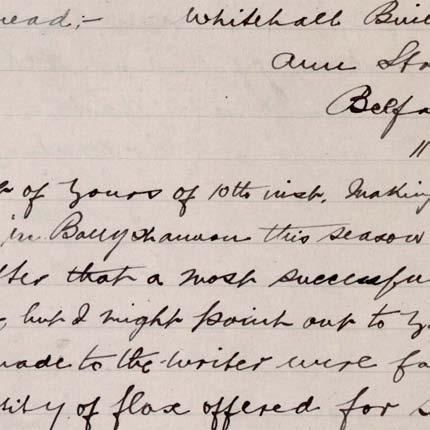 ead;- Whitehall Buil
Ann St
Belfa
11
of Yours of 10th inst. Making
in Ballyshannon this season
tter that a most successfu
, but I might point out to Y
made to the writer were fa
tity of flax offered for s